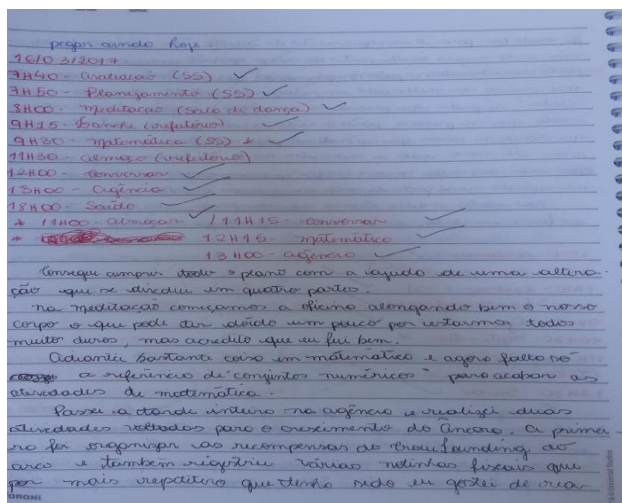 pegar ainda hoje
16/03/2017
7H40 - avaliação (SS) ✓
7H50 - Planejamento (SS) ✓
8H00 - Meditação (sala de dança) ✓
9H15 - Lanche (refeitório) ✓
9H30 - matemática (SS) * ✓
11H30 - almoço (refeitório)
12H00 - conversar ✓
13H00 - Agência ✓
18H00 - Saída ✓
* 11H00 - almoçar ✓ / 11H15 - conversar ✓
* 12H15 - matemática ✓
13H00 - agência ✓
Consegui cumprir todo o plano com a ajuda de uma altera-
ção que se dividiu em quatro partes.
Na meditação começamos a oficina alongando bem o nosso
corpo o que pode ter doído um pouco por estarmos todos
muito duros, mas acredito que eu fui bem.
Adiantei bastante coisa em matemática e agora falta só
a referência de "conjuntos numéricos" para acabar as
atividades de matemática.
Passei a tarde inteira na agência e realizei duas
atividades voltadas para o crescimento do Âncora. A primei-
ra foi organizar as recompensas do crowdfounding do
circo e também registrei várias notinhas fiscais que
por mais repetitivo que tenha sido eu gostei de rea-